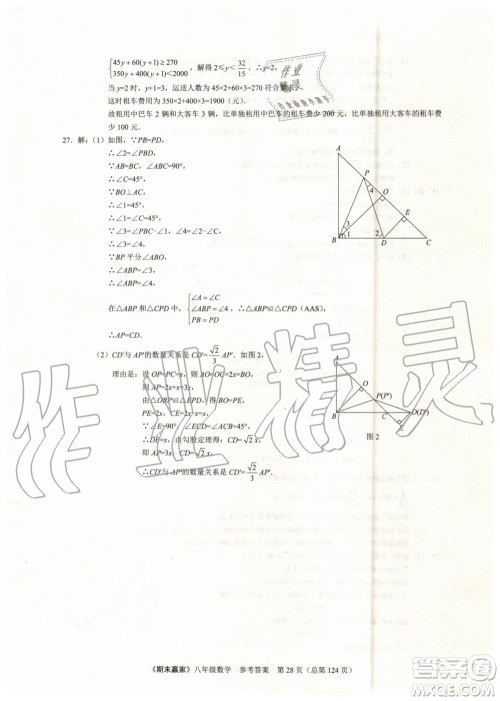 45y+60(y+1)≥270
350y+400(y+1)<2000
，解得 2≤y<32/15，∴y=2，
当 y=2 时，y+1=3，运送人数为 45×2+60×3=270 符合要求，
这时租车费用为 350×2+400×3=1900（元）.
故租用中巴车 2 辆和大客车 3 辆，比单独租用中巴车的租车费少 200 元，比单独租用大客车的租车费
少 100 元.
27. 解：（1）如图，∵PB=PD，
∴∠2=∠PBD，
∵AB=BC，∠ABC=90°，
∴∠C=45°，
∵BO⊥AC，
∴∠1=45°，
∴∠1=∠C=45°，
∵∠3=∠PBC－∠1，∠4=∠2－∠C，
∴∠3=∠4，
∵BP 平分∠ABO，
∴∠ABP=∠3，
∴∠ABP=∠4，
在△ABP 和△CPD 中，
∠A=∠C
∠ABP=∠4
PB=PD
，∴△ABP≌△CPD（AAS），
∴AP=CD.
A
P
4
O
E
3
1
2
B
D
C
（2）CD'与 AP'的数量关系是 CD'=√2/3 AP'. 如图 2，
理由是：设 OP=PC=x，则 AO=OC=2x=BO，
则 AP=2x+x=3x，
由△OBP≌△EPD，得 BO=PE，
PE=2x，CE=2x－x=x，
∵∠E=90°，∠ECD=∠ACB=45°，
∴DE=x，由勾股定理得：CD=√2x，
即 AP=3x，CD=√2x，
∴CD'与 AP'的数量关系是 CD'=√2/3 AP'
A
O
P(P')
B
C
D(D')
E
图 2
作业
作业精灵
《期末赢家》八年级数学 参考答案 第 28 页（总第 124 页）